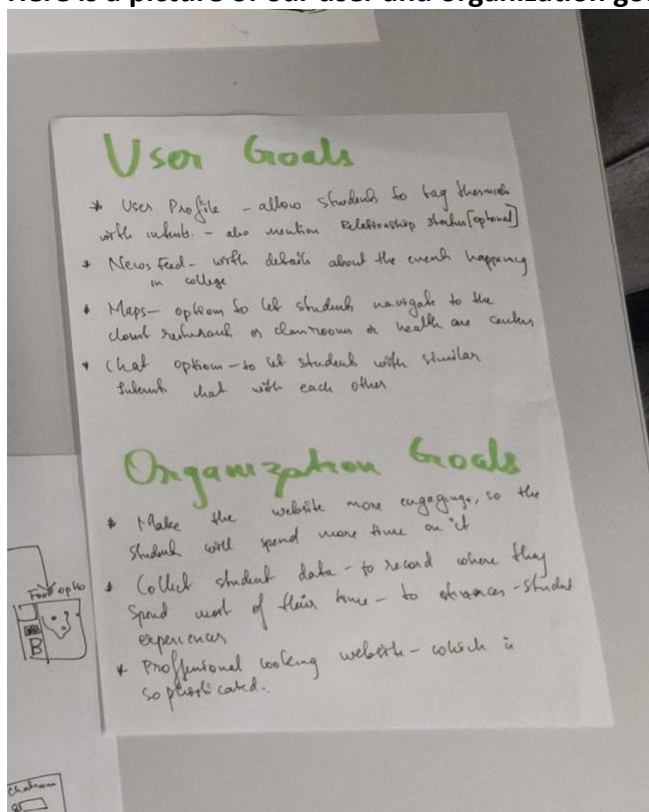 User Goals
* User Profile - allow students to tag themselves
with interests. - also mention Relationship status [optional]
* News Feed - with details about the events happening
in college
* Maps - option to let students navigate to the
closest restaurants or classrooms or health care centers
* Chat option - to let student with similar
Interests chat with each other
Organization Goals
* Make the website more engaging, so the
student will spend more time on it
* Collect student data - to record where they
spend most of their time - to - student
experiences
* Proffentional looking website - which is
sophisticated.
Food optio
B
Chatroom